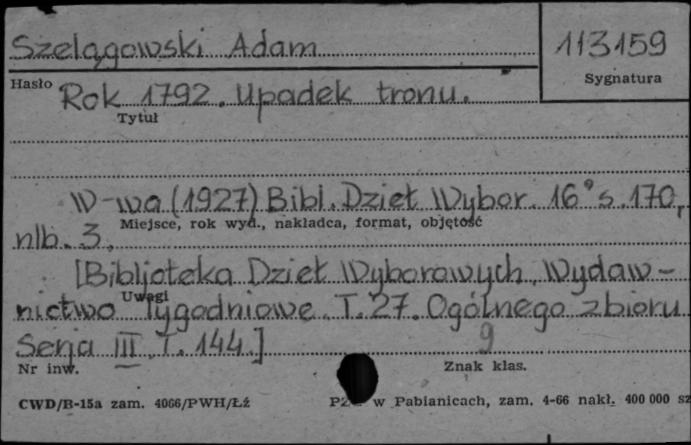 Szelągowski Adam
113159
Hasło
Sygnatura
Rok 1792. Upadek tronu.
Tytuł
W-wa (1927) Bibl. Dzieł Wybor. 16° s. 170,
Miejsce, rok wyd., nakładca, format, objętość
nlb. 3,
[Bibljoteka Dzieł Wyborowych, Wydaw-
Uwagi
nictwo Tygodniowe. T. 27. Ogólnego zbioru
Serja III T. 144.]
9
Nr inw.
Znak klas.
CWD/B-15a zam. 4066/PWH/Łź
w Pabianicach, zam. 4-66 nakł. 400 000 sz